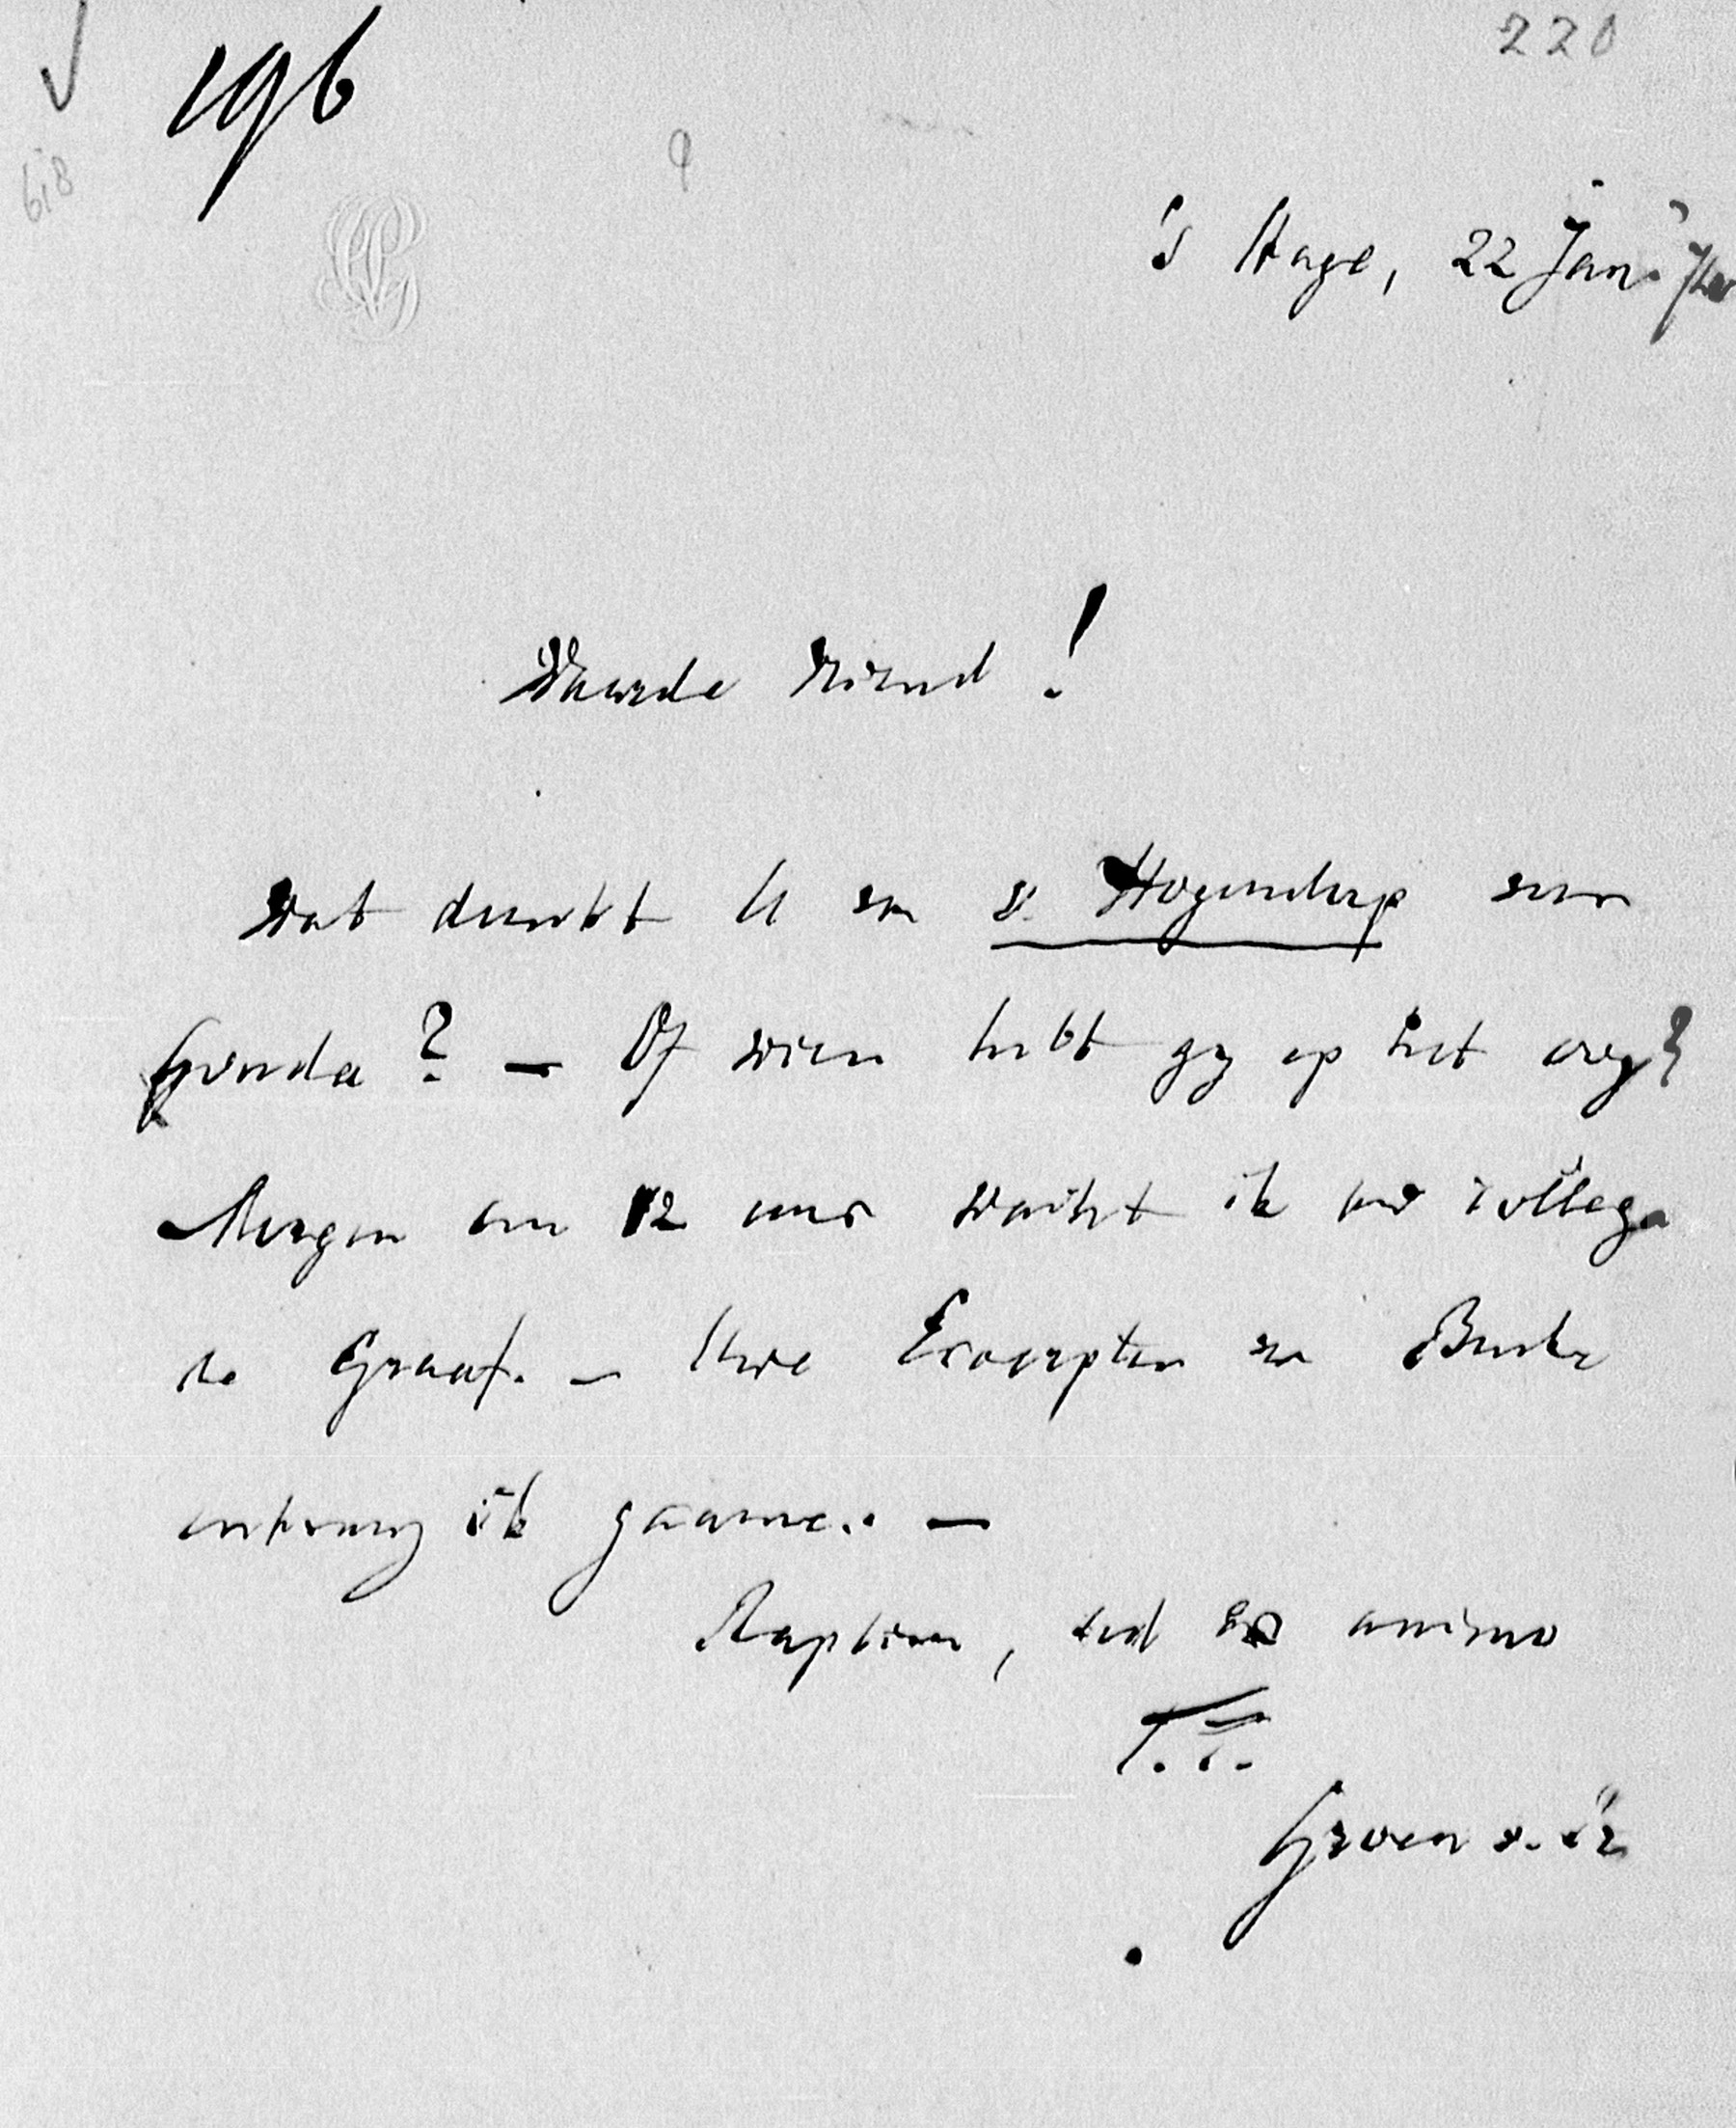 220
196
618
's Hage, 22 Jan.
Waarde Vriend!
Wat dunkt U van v. Hogendorp voor
Gouda? — Of wien hebt gy op het oog?
Morgen om 12 uur wacht ik uw collega
de Graaf. — Uwe Excerpten van Burke
ontvang ik gaarne. —
Raptim, sed ex animo
T.T.
Groen v. Pr